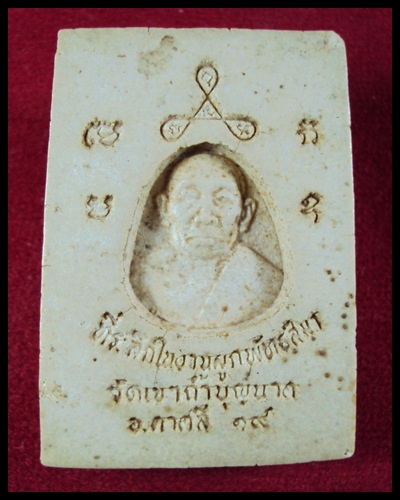 ที่ระลึกในงานผูกพัทธสีมา
วัดเขาถ้ำบุญนาค
อ.ตาคลี ๑๙